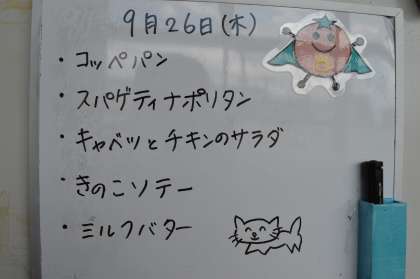 9月26日(木)
・コッペパン
・スパゲティナポリタン
・キャベツとチキンのサラダ
・きのこソテー
・ミルクバター